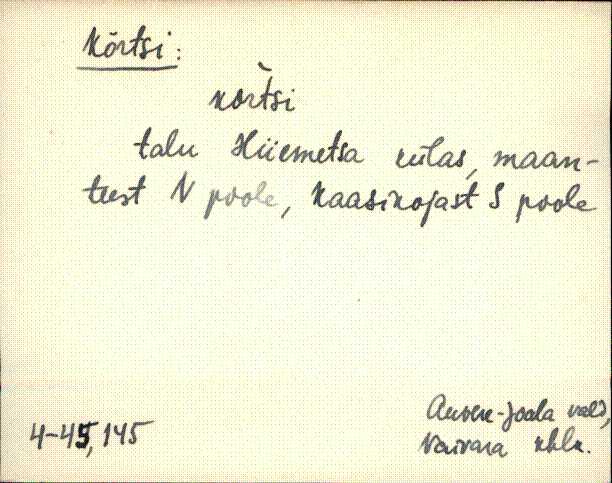 Kõrtsi:
kõ̀rtsi
talu Hiiemetsa külas, maan-
teest N poole, Kaasikojast S poole
4-45, 145
Auvere-Joala vald,
Vaivara khk.